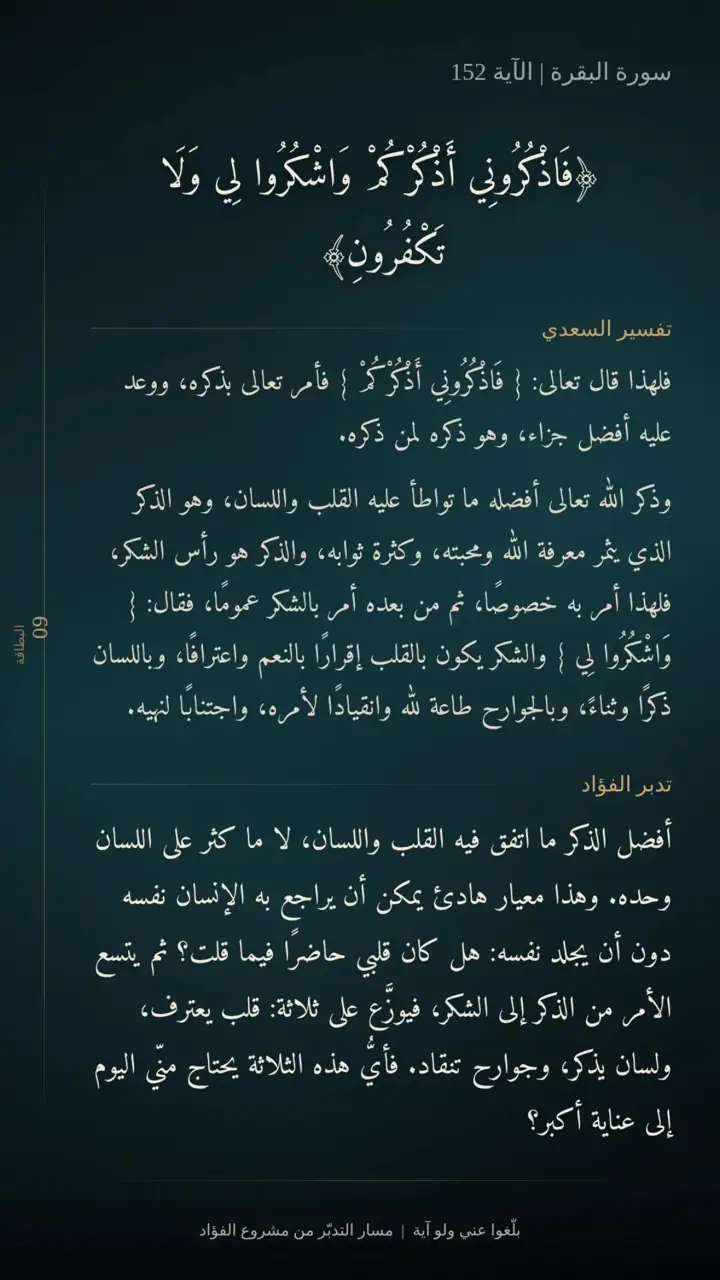 سورة البقرة | الآية 152
﴿فَاذْكُرُونِي أَذْكُرْكُمْ وَاشْكُرُوا لِي وَلَا
تَكْفُرُونِ﴾
تفسير السعدي
فلهذا قال تعالى: { فَاذْكُرُونِي أَذْكُرْكُمْ } فأمر تعالى بذكره، ووعد
عليه أفضل جزاء، وهو ذكره لمن ذكره.
وذكر الله تعالى أفضله ما تواطأ عليه القلب واللسان، وهو الذكر
الذي يثمر معرفة الله ومحبته، وكثرة ثوابه، والذكر هو رأس الشكر،
فلهذا أمر به خصوصًا، ثم من بعده أمر بالشكر عمومًا، فقال: {
وَاشْكُرُوا لِي } والشكر يكون بالقلب إقرارًا بالنعم واعترافًا، وباللسان
ذكرًا وثناءً، وبالجوارح طاعة لله وانقيادًا لأمره، واجتنابًا لنهيه.
تدبر الفؤاد
أفضل الذكر ما اتفق فيه القلب واللسان، لا ما كثر على اللسان
وحده. وهذا معيار هادئ يمكن أن يراجع به الإنسان نفسه
دون أن يجلد نفسه: هل كان قلبي حاضرًا فيما قلت؟ ثم يتسع
الأمر من الذكر إلى الشكر، فيوزَّع على ثلاثة: قلب يعترف،
ولسان يذكر، وجوارح تنقاد. فأيُّ هذه الثلاثة يحتاج منّي اليوم
إلى عناية أكبر؟
البطاقة
09
بلّغوا عني ولو آية | مسار التدبّر من مشروع الفؤاد